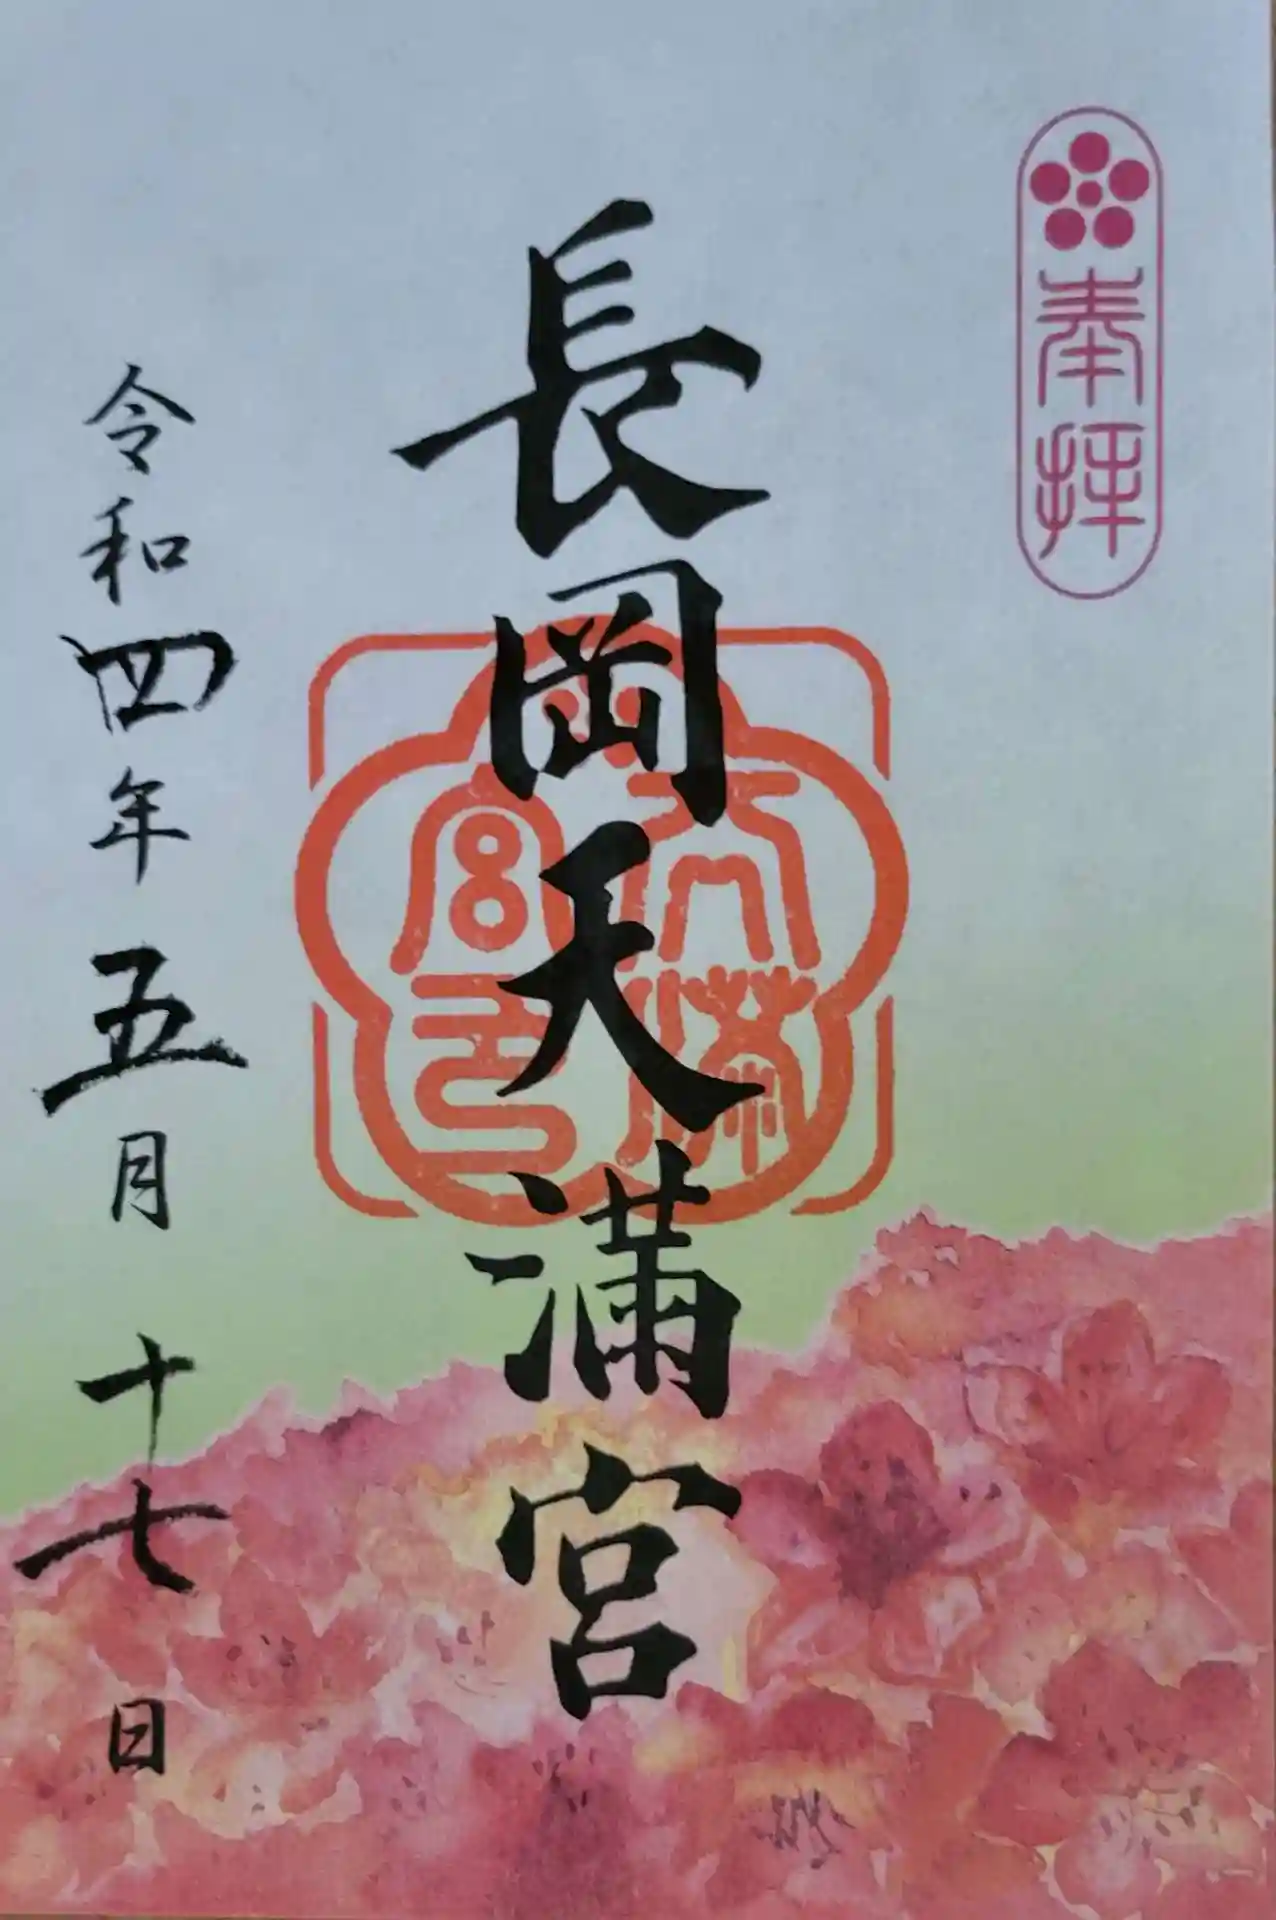 奉拝
長岡天満宮
天満宮印
令和四年五月十七日